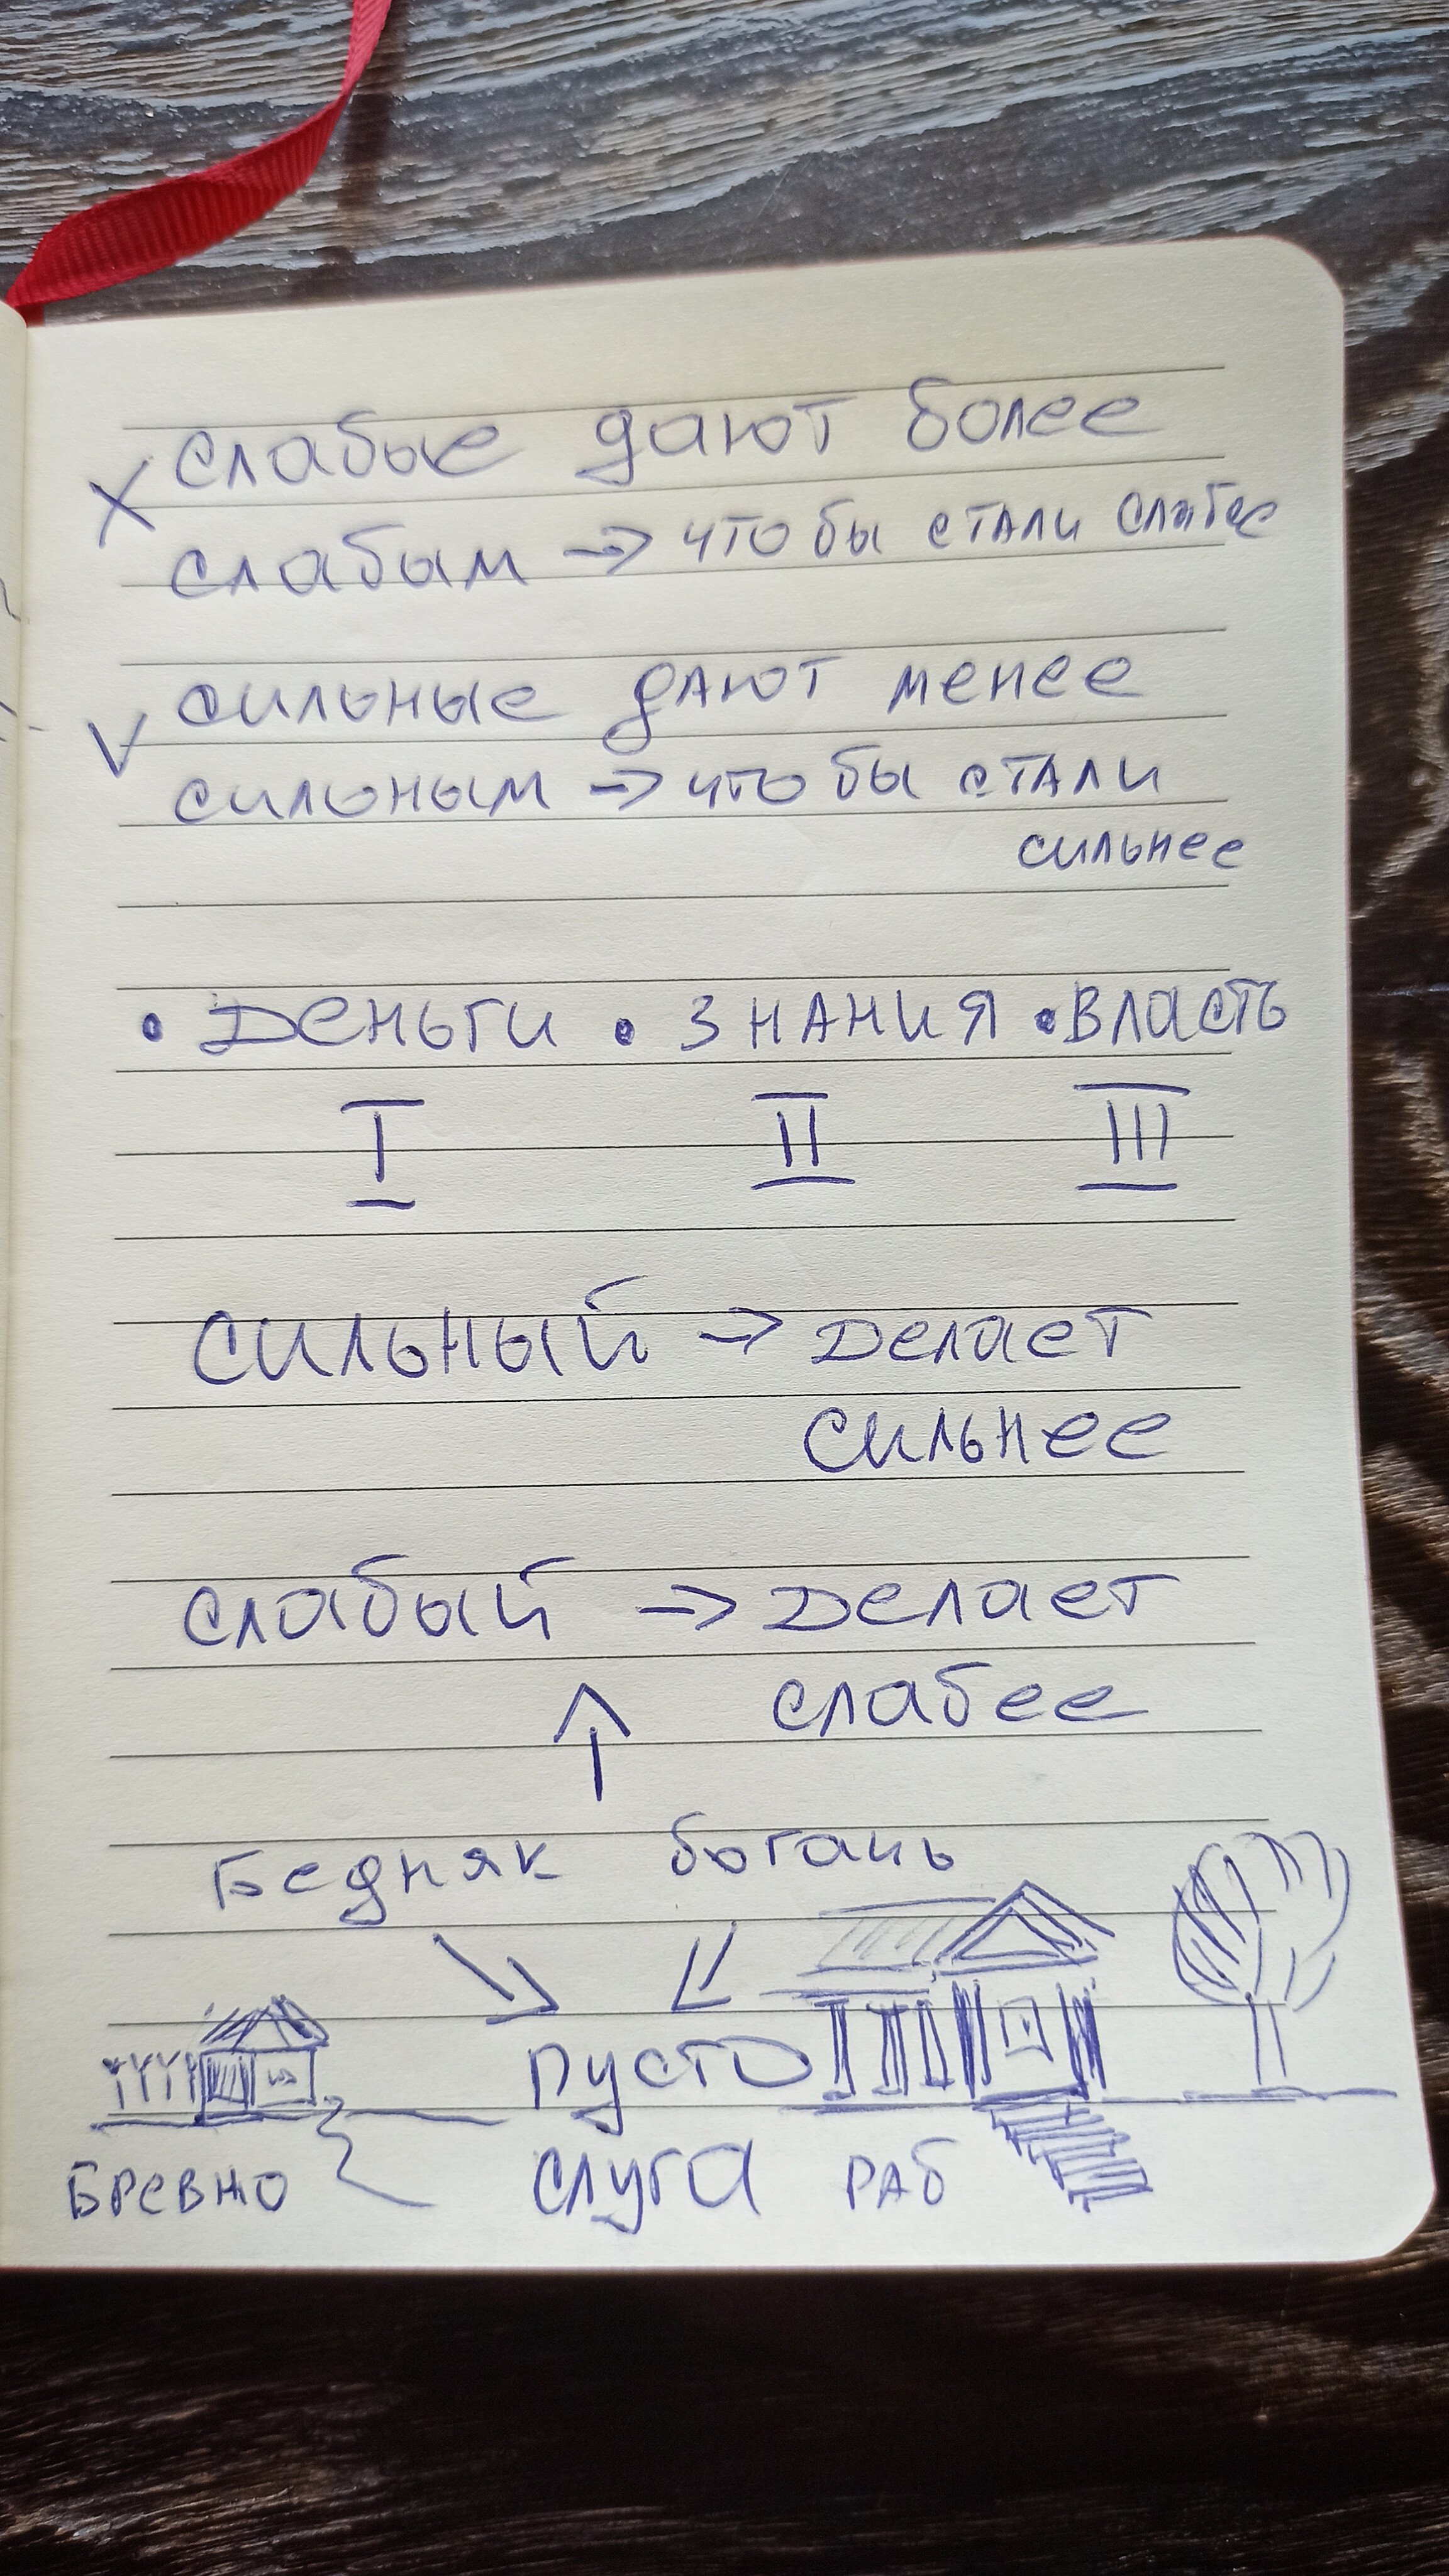 слабые дают более
X
слабым → что бы стали слабее
сильные дают менее
V
сильным → что бы стали
сильнее
• Деньги • знания • власть
I II III
сильный → делает
сильнее
слабый → делает
слабее
↑
Бедняк богачь
пусто
Бревно слуга раб